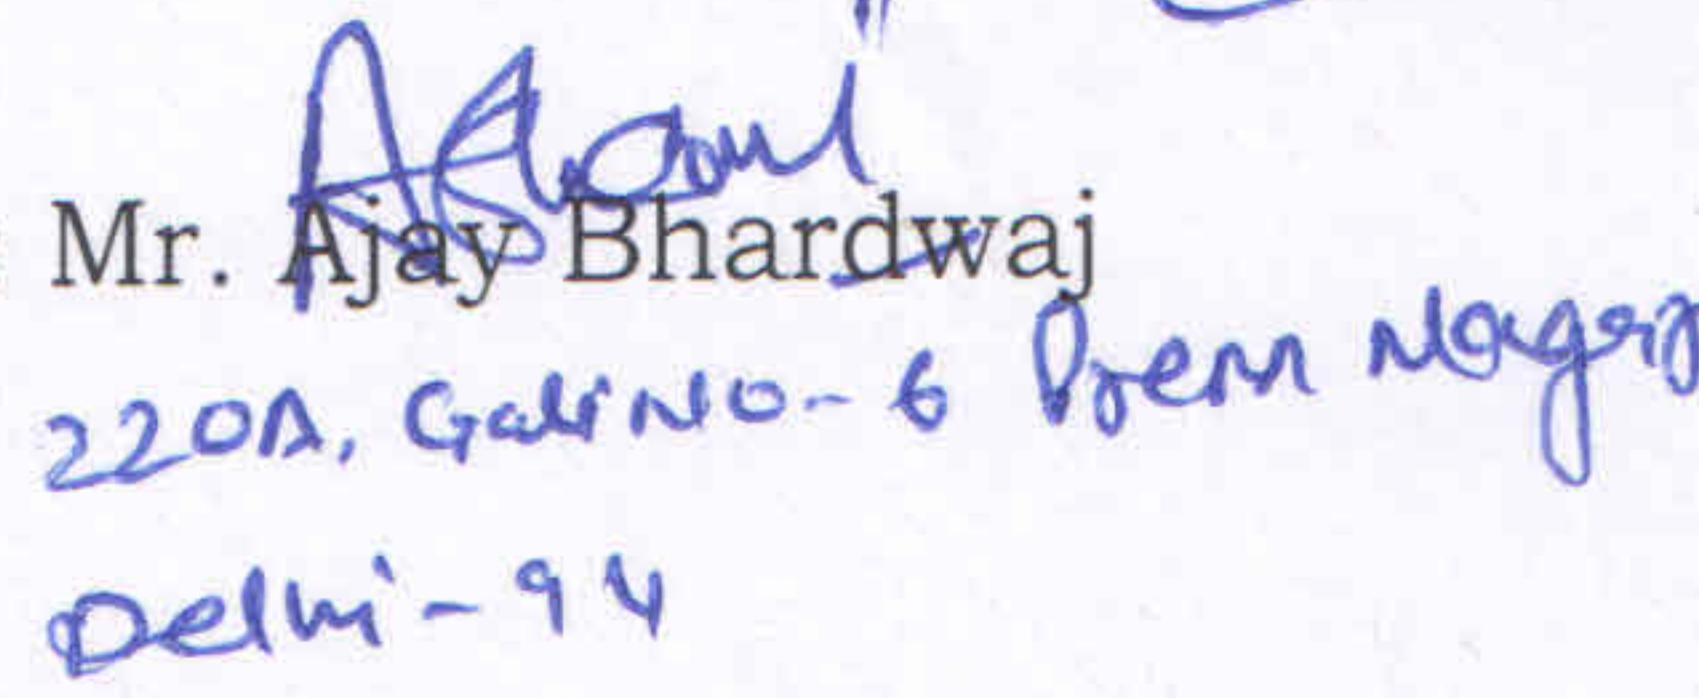 Mr. Ajay Bhardwaj
220A, Gali No-6 Prem Nagar
Delhi-94